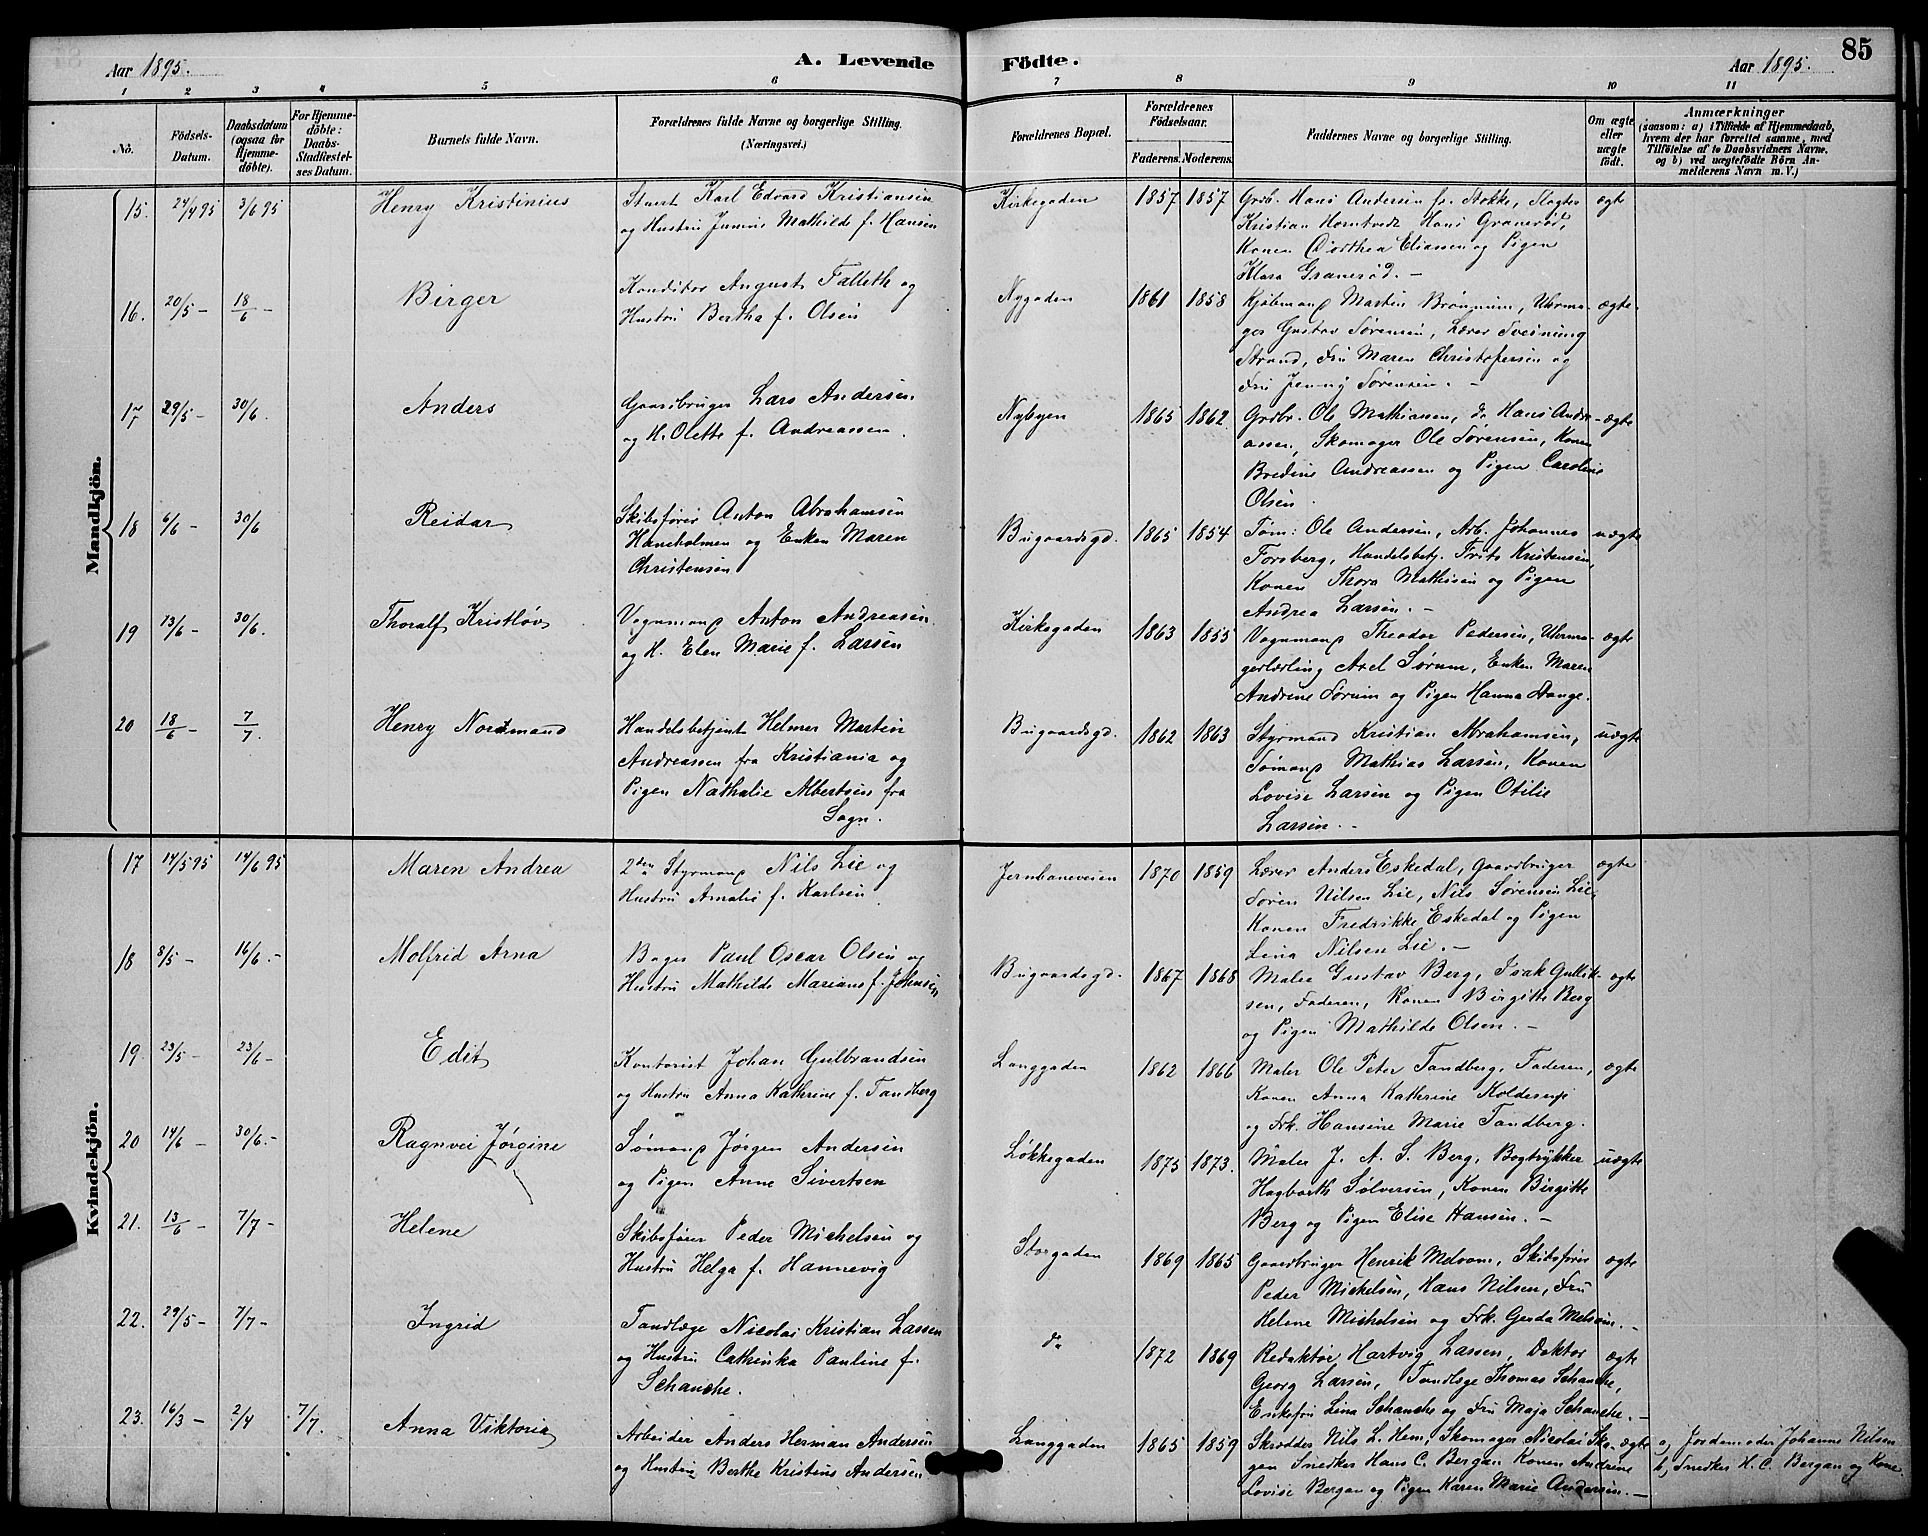 Aar 1895.
A. Levende
Födte.
Aar 1895.
85
1 2 3 4 5 6 7 8 9 10 11
No.
Födsels-
Datum.
Daabsdatum
(ogsaa for
Hjemme-
döbte).
For Hjemme-
döbte:
Daabs-
Stadfæstel-
ses Datum.
Barnets fulde Navn.
Forældrenes fulde Navne og borgerlige Stilling.
(Næringsvei.)
Forældrenes Bopæl.
Forældrenes
Födselsaar.
Faderens.
Moderens.
Faddernes Navne og borgerlige Stilling.
Om ægte
eller
uægte
födt.
Anmærkninger
(saasom: a) i Tilfælde af Hjemmedaab,
hvem der har forrettet samme, med
Tilföielse af to Daabsvidners Navne.
og b) ved uægtefödte Börn An-
melderens Navn m. V.)
Mandkjön.
15. 24/4 95 3/6 95 Henry Kristinius
Karl Edvard Kristiansen
og Hustru Mathilde f. Hansen
Kirkegaden 1857 1857
Grdb. Hans Andersen fr. Stokke, Slagter
Kristian Horntvedt Hans Granerød,
Konen Dorthea Eliassen og Pigen
Klara Granerød. —
ægte
16. 20/5 — 18/6 — Birger
Konditor August Falleth og
Hustru Bertha f. Olsen
Nygaden 1861 1858
Kjøbmand Martin Brønnum, Uhrma-
ger Gustav Sørensen, Lærer Sveinung
Strand, Fru Maren Christofersen og
Fru Jenny Sørensen. —
ægte
17 29/5 — 30/6. Anders
Gaardbruger Lars Andersen
og H. Olette f. Andreassen.
Nybyen 1865 1862
Grdbr. Ole Mathiassen, do Hans Andre-
assen, Skomager Ole Sørensen, Konen
Bredine Andreassen og Pigen Caroline
Olsen
ægte
18 6/6 — 30/6 Reidar
Skibsfører Anton Abrahamsen
Haneholmen og Enken Maren
Christensen
Bugaardsgd. 1865 1854
Tøm: Ole Andersen, Arb. Johannes
Forsberg, Handelsbetj. Frits Kristensen,
Konen Thora Mathisen og Pigen
Andrea Larsen. —
uægte
19 13/6 — 30/6. Thoralf Kristlov
Vognmand Anton Andreasen
og H. Elen Marie f. Larsen
Kirkegaden 1863 1855
Vognmand Theodor Pedersen, Uhrma-
gerlærling Axel Sørum, Enken Maren
Andrine Sørum og Pigen Hanna Stange.
ægte
20 18/6 — 7/7. Henry Nordmand
Handelsbetjent Helmer Martin
Andreassen fra Kristiania og
Pigen Nathalie Albertsen fra
Sogn.
Bugaardsgd. 1862 1863
Styrmand Kristian Abrahamsen,
Sømand Mathias Larsen, Konen
Lovise Larsen og Pigen Otilie
Larsen. —
uægte
Kvindekjön.
17 14/5 95 14/6 95 Maren Andrea
2den Styrmand Nils Lie og
Hustru Amalie f. Karlsen
Jernbaneveien 1870 1859
Lærer Anders Eskedal, Gaardbruger
Søren Nilsen Lie, Nils Sørensen Lie,
Konen Fredrikke Eskedal og Pigen
Lina Nilsen Lie. —
ægte
18 8/5 — 16/6. — Molfrid Arna
Bager Paul Oscar Olsen og
Hustru Mathilde Mariane f. Johnsen
Bugaardsgd. 1867 1868
Maler Gustav Berg, Isak Gullik-
sen, Faderen, Konen Birgitte Berg
og Pigen Mathilde Olsen. —
ægte
19. 23/5 — 23/6 — Edit
Kontorist Johan Gulbrandsen
og Hustru Anna Kathrine f. Tandberg
Langgaden 1862 1866
Maler Ole Peter Tandberg, Faderen,
Konen Anna Kathrine Koldesrie
og Frk. Hansine Marie Tandberg.
ægte
20 14/6 — 30/6. — Ragnvei Jørgine
Sømand Jørgen Andersen
og Pigen Anne Sivertsen
Løkkegaden 1875 1873.
Maler J. A. S. Berg, Bogtrykker
Hagbarth Sølversen, Konen Birgitte
Berg og Pigen Elise Hansen. —
uægte
21. 13/6 — 7/7 — Helene
Skibsfører Peder Michelsen og
Hustru Helga f. Hannevig
Storgaden 1869 1865
Gaardbruger Henrik Melsom, Skibsfører
Peder Mickelsen, Hans Nilsen, Fru
Helene Michelsen og Frk. Gerda Melsom. —
ægte
22. 29/5 — 7/7 — Ingrid
Tandlæge Nicolai Kristian Lassen
og Hustru Cathinka Pauline f.
Schanche.
do 1872 1869
Redaktør Hartvig Lassen, Doktor
Georg Larsen, Tandlæge Thomas Schanche,
Enkefru Lina Schanche og Fru Maja Schanche. —
ægte
23. 16/3 — 2/4 7/7. Anna Viktoria
Arbeider Anders Herman Andersen
og Hustru Berthe Kristine Andersen
Langgaden 1865 1859
Skrædder Nils L. Hem, Skomager Nicolai Sko-
gen Snedker Hans C. Bergan Konen Andrine
Lovise Bergan og Pigen Karen Marie Andersen. —
ægte
a, Jordemoder Johanne Nilsen
b, Snedker H. C. Bergan og Kone